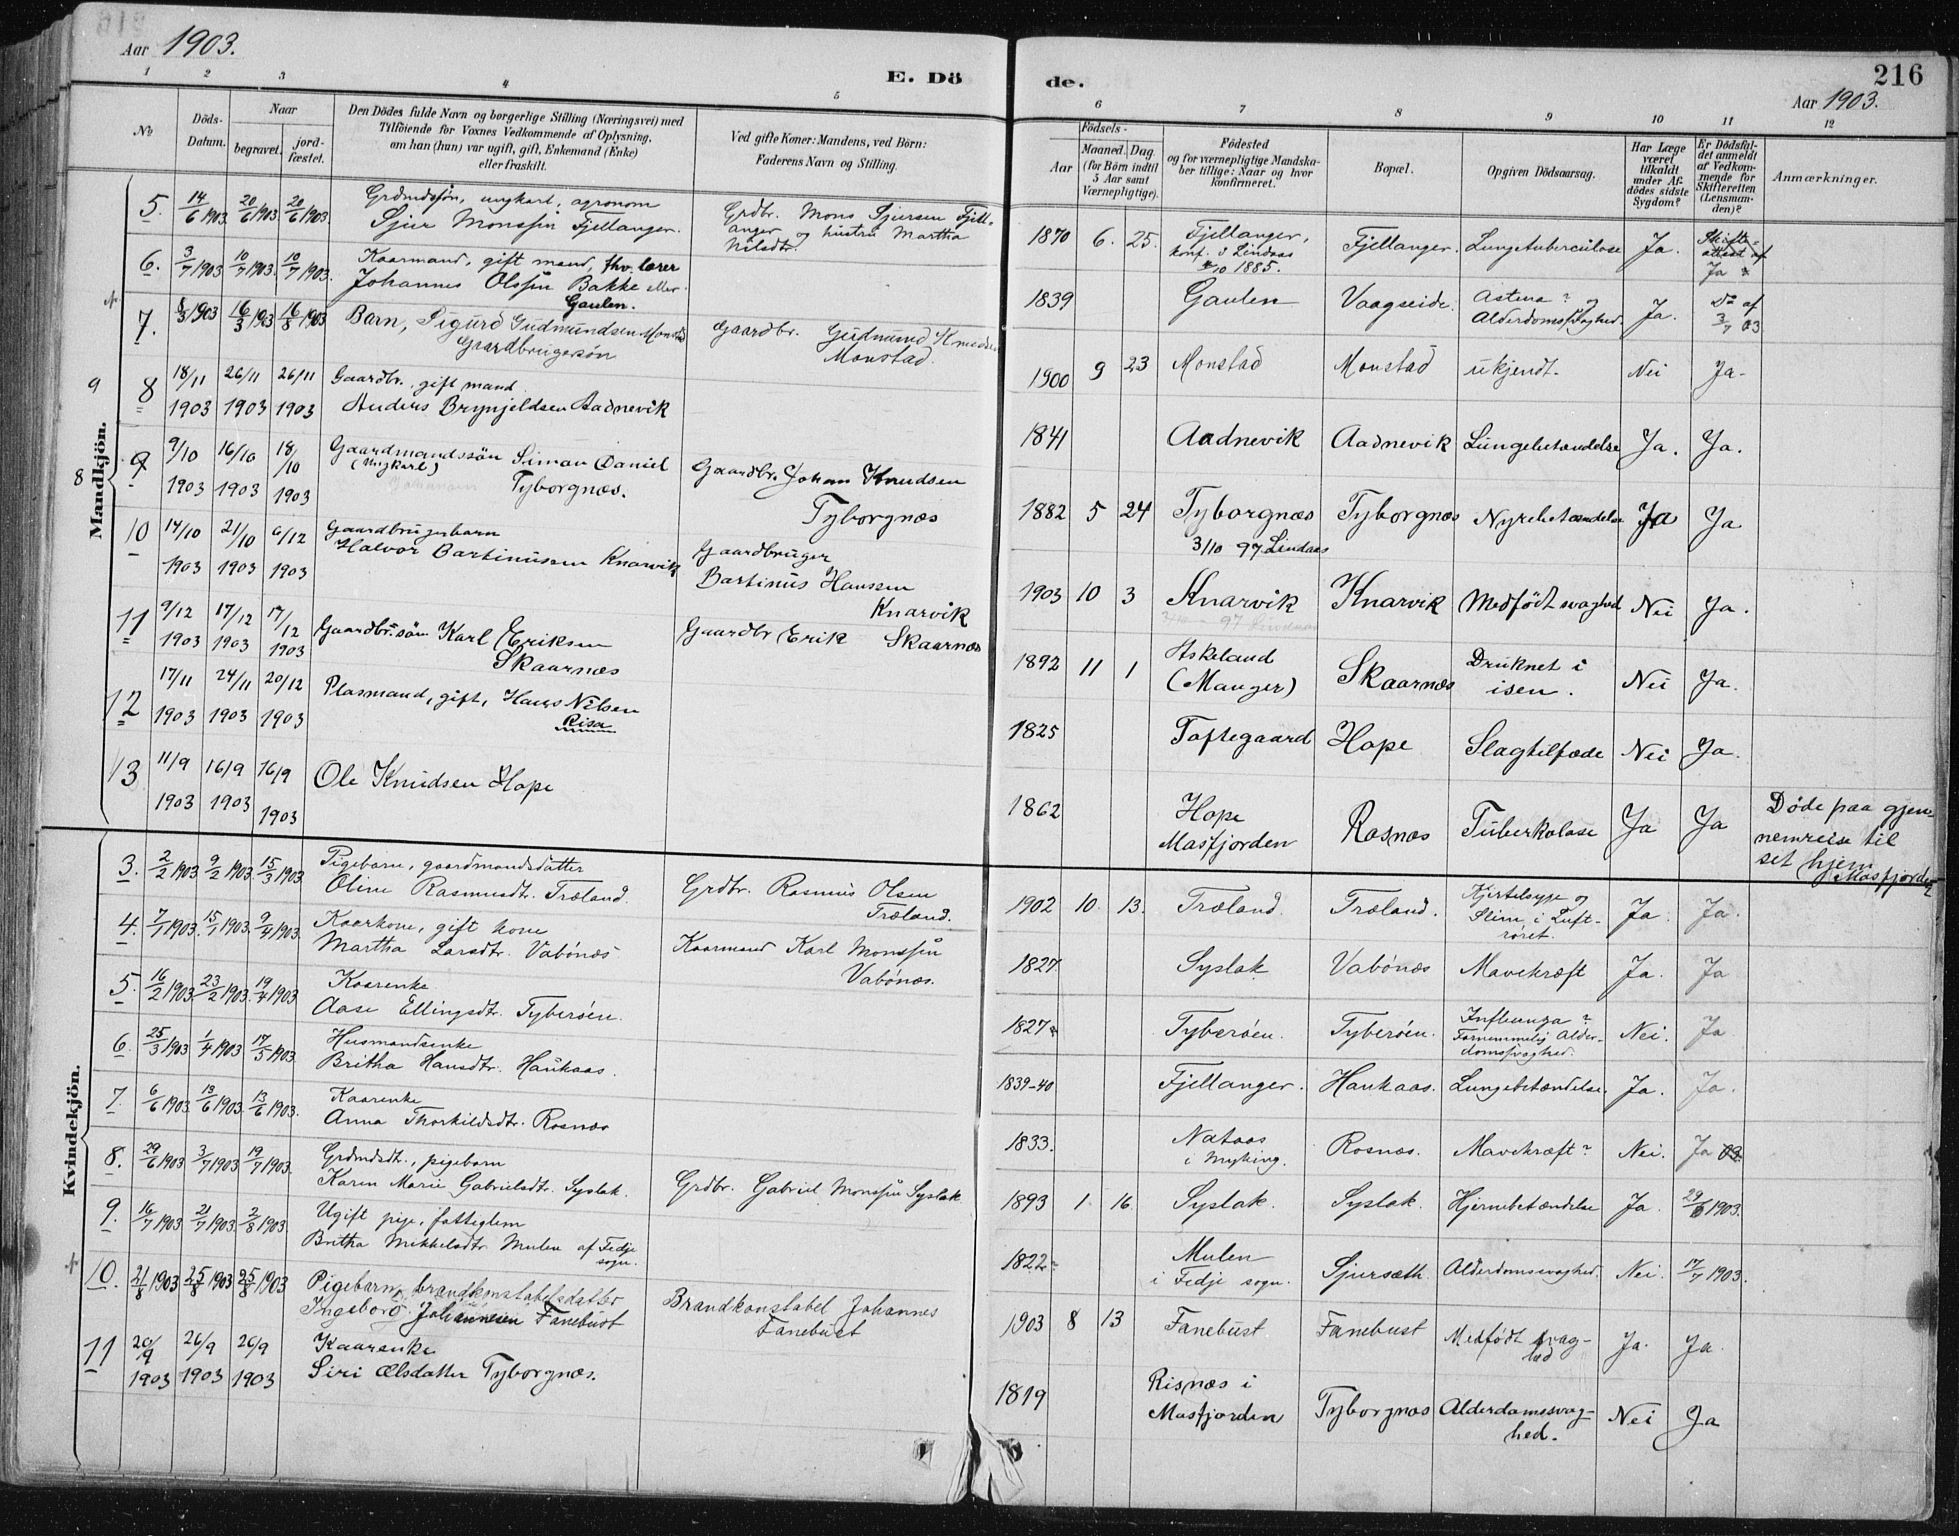 216
Aar 1903.
E. Döde.
Aar 1903.
1 2 3 4 5 6 7 8 9 10 11 12
No
Döds-Datum.
Naar
begravet.
jord-fæstet.
Den Dödes fulde Navn og borgerlige Stilling (Næringsvei) med
Tilföiende for Voxnes Vedkommende af Oplysning,
om han (hun) var ugift, gift, Enkemand (Enke)
eller fraskilt.
Ved gifte Koner: Mandens, ved Börn:
Faderens Navn og Stilling.
Födsels-
Aar
Maaned.
Dag.
(for Börn indtil
5 Aar samt
Værnepligtige).
Födested
og for værnepligtige Mandska-
ber tillige: Naar og hvor
konfirmeret.
Bopæl.
Opgiven Dödsaarsag.
Har Læge
været
tilkaldt
under Af-
dödes sidste
Sygdom?
Er Dödsfal-
det anmeldt
af Vedkom-
mende for
Skifteretten
(Lensman-
den)?
Anmærkninger.
Mandkjön.
5. 14/6 1903 20/6 1903 20/6 1903 Grdmdssön, ungkarl, agronom
Sjur Monssön Fjellanger.
Grdbr. Mons Sjursen Fjell-
anger og hustru Martha
Nilsdtr.
1870 6. 25. Fjellanger,
konf. i Lindaas
4/10 1885.
Fjellanger. Lungetuberculose Ja. Skifte-
attest af
Ja
6. 3/7 1903 10/7 1903. 10/7 1903. Kaarmand, gift mand, fhv. lærer
Johannes Olssön Bakke eller
Gaulen.
1839 Gaulen Vaagseide. Astma?
Alderdomssvaghed. Ja. Do af
3/7 03.
7. 8/3 1903 16/3 1903 16/8 1903 Barn, Sigurd Gudmundsen Monstad
Gaardbrugersön
Gaardbr. Gudmund Knudsen
Monstad.
1900 9 23 Monstad Monstad ukjendt. Nei Ja.
9
8 18/11 1903 26/11 1903 26/11 1903 Gaardbr. gift mand
Anders Brynjeldsen Aadnevik
1841 Aadnevik Aadnevik Lungebetændelse Ja. Ja.
8
9 9/10 1903 16/10 1903 18/10 1903 Gaardmandssön Simon Daniel
(Ungkarl) Tyborgnæs.
Gaardbr. Johan Knudsen
Tyborgnæs
1882 5 24 Tyborgnæs
3/10 97 Lindaas
Tyborgnæs Nyrebetændelse Ja Ja
10 14/10 1903 21/10 1903 6/12 1903 Gaardbrugerbarn
Halvor Bartinussen Knarvik
Gaardbruger
Bartinus Hanssen
Knarvik
1903 10 3 Knarvik Knarvik Medfödt svaghed Nei Ja.
11 9/12 1903 17/12 1903 17/12 1903 Gaardbr.sön Karl Eriksen
Skaarnæs
Gaardbr Erik Skaarnæs
1892 11 1 Askeland
(Manger)
Skaarnæs Druknet i
isen. Nei Ja.
12 17/11 1903 24/11 1903 20/12 1903 Plasmand, gift, Hans Nilsen
Risa
1825 Toftegaard Hope Slagtilfæde Nei Ja.
13 11/9 1903 16/9 1903 16/9 1903 Ole Knudsen Hope
1862 Hope
Masfjorden
Rosnæs Tuberkolose Ja Ja Döde paa gjen-
nemreise til
set hjem
Masfjorden
Kvindekjön.
3. 2/2 1903 9/2 1903. 15/3 1903 Pigebarn, gaardmandsdatter
Oline Rasmusdtr. Træland.
Grdbr. Rasmus Olsen
Træland.
1902 10. 13. Træland. Træland. Kjertelsyge og
Slim i Luft-
röret. Ja. Ja.
4. 7/1 1903. 15/1 1903. 9/4 1903. Kaarkone, gift kone
Martha Larsdtr. Vabönæs
Kaarmand Karl Monssön
Vabönæs.
1827 Syslak Vabönæs Mavekræft Ja. Ja
5. 16/2 1903 23/2 1903. 19/4 1903 Kaarenke
Aase Ellingsdtr. Tyberöen.
1827 Tyberöen. Tyberöen. Influenza?
Fornemmelig Alder-
domssvaghed. Nei. Ja
6. 25/3 1903 1/4 1903 17/5 1903. Husmandsenke
Britha Hansdtr. Haukaas.
1839-40 Fjellanger. Haukaas. Lungebetændelse. Ja. Ja.
7. 6/6 1903 13/6 1903. 13/6 1903. Kaarenke
Anna Thorkildsdtr. Rosnæs
1833. Nataas
i Myking.
Rosnæs. Mavekræft? Nei. Ja
8. 29/6 1903 3/7 1903 19/7 1903. Grdmdsdtr., pigebarn
Karen Marie Gabrielsdtr. Syslak.
Grdbr. Gabriel Monssön Syslak
1893 1. 16. Syslak. Syslak. Hjernebetændelse Ja. 29/6 1903.
9. 16/7 1903 21/7 1903. 2/8 1903. Ugift pige, fattiglem
Britha Mikkelsdtr. Mulen af Fedje
sogn.
1822 Mulen
i Fedje sogn.
Sjursæth. Alderdomssvaghed. Nei. 17/7 1903.
10. 21/8 1903 25/8 1903 25/8 1903 Pigebarn, brandkonstabelsdatter
Ingeborg Johannesen Fanebust
Brandkonstabel Johannes
Fanebust
1903 8 13 Fanebust Fanebust Medfödt svag-
hed Ja. Ja.
11 20/9 1903 26/9 1903 26/9 1903 Kaarenke
Siri Ælsdatter Tyborgnæs.
1819 Risnæs i
Masfjorden
Tyborgnæs Alderdomssvag-
hed. Nei Ja